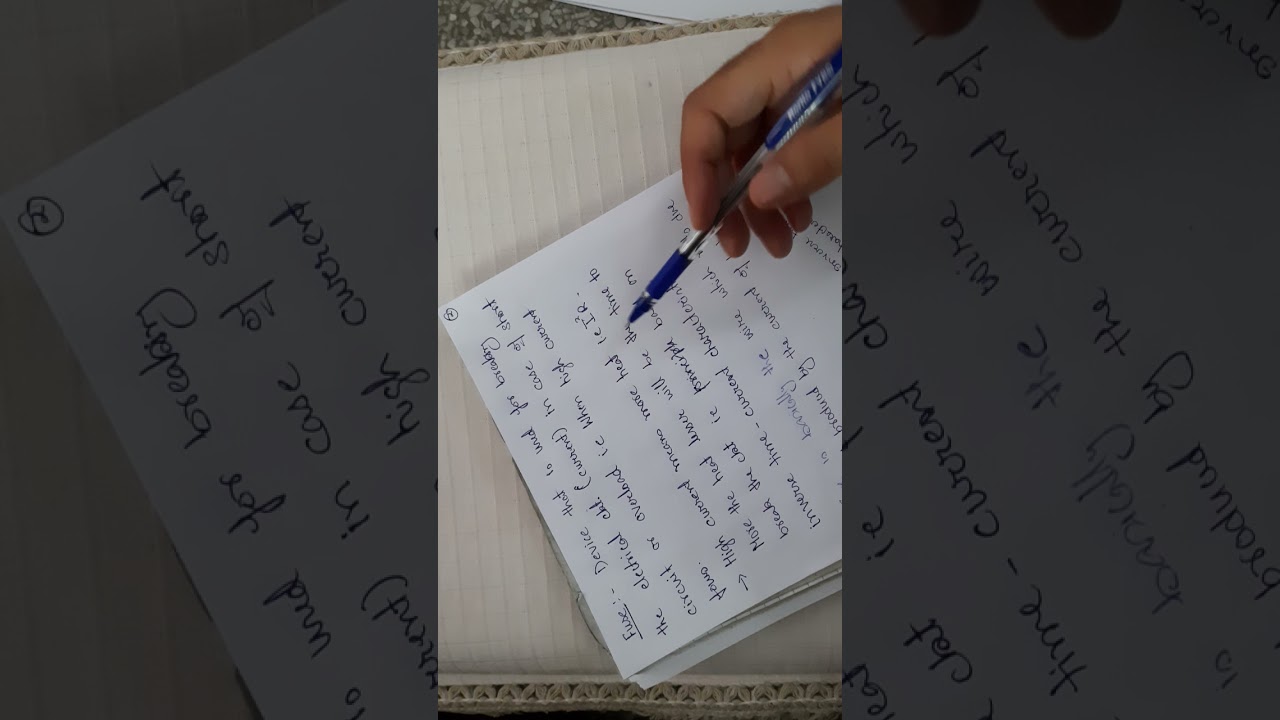 Fuse :- Device that is used for breaking
the electrical ckt. (current) in case of short
circuit or overload ie when high current
flows.
→ High current means more heat ie I²R.
More the heat lesser will be the time to
break the ckt ie principle
inverse time - current characteristic
is basically the wire which
produced by the current of